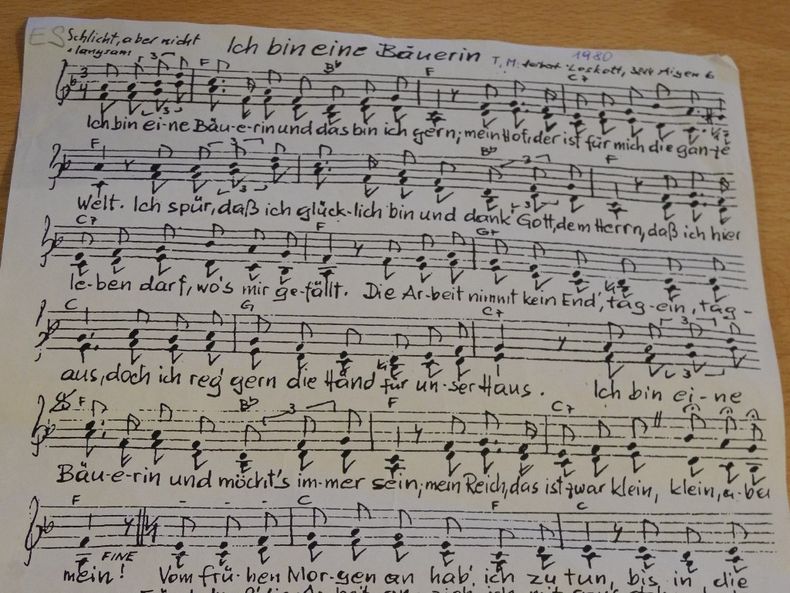 ES Schlicht, aber nicht Ich bin eine Bäuerin 1980
z langsam T, M: Loskott,
3 F B♭ F C7
3
Ich bin ei-ne Bäu-e-rin und das bin ich gern; mein Hof, der ist für mich die gan-ze
F 3 B♭ 3 F
3 3
Welt. Ich spür, daß ich glück-lich bin und dank' Gott, dem Herrn, daß ich hier
C7 F G7
le-ben darf, wo's mir ge-fällt. Die Ar-beit nimmt kein End', tag-ein, tag-
C G C7 3
3
aus, doch ich reg' gern die Händ für un-ser Haus. Ich bin ei-ne
F B♭ 3 F C7
Bäu-e-rin und möcht's im-mer sein; mein Reich, das ist zwar klein, klein, a-ber
F C F C
FINE
mein! Vom frü-hen Mor-gen an hab' ich zu tun, bis in die